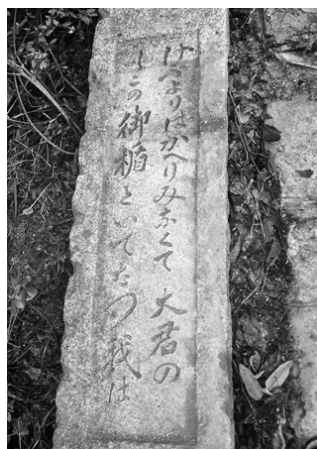 けふよりはかへりみなくて 大君の
しこの御楯といてたつ我は